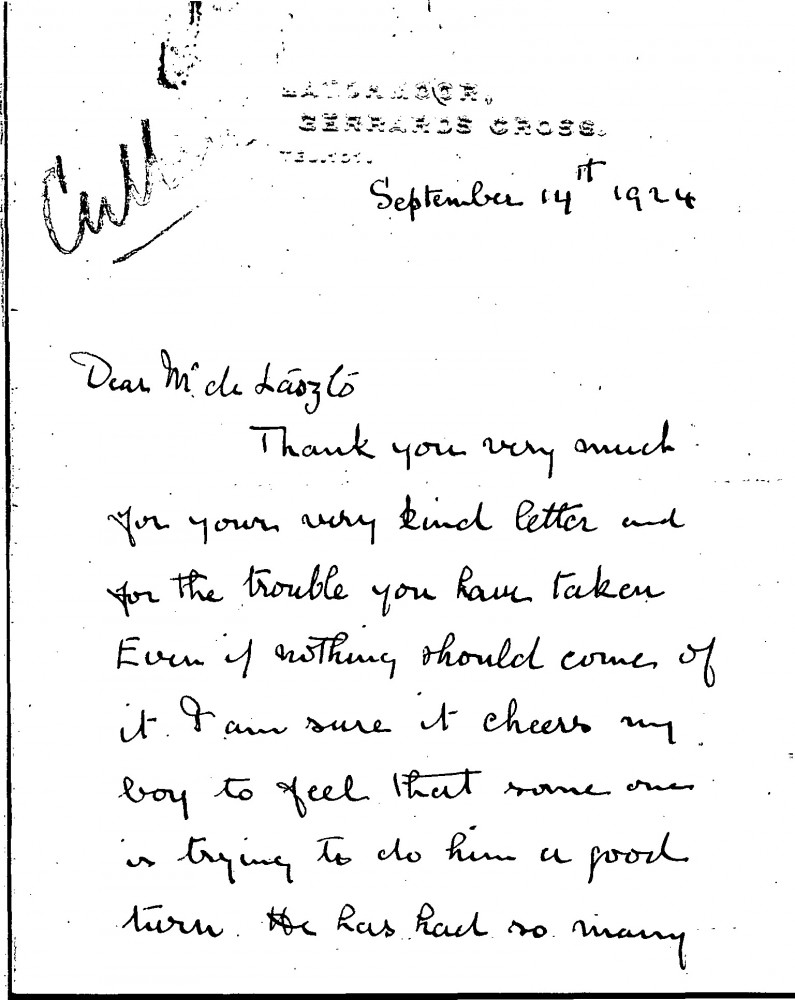 LATCHMOOR,
GERRARDS CROSS.
TEL. 101.
September 14th 1924
Dear Mr. de László
Thank you very much
for your very kind letter and
for the trouble you have taken
Even if nothing should come of
it. I am sure it cheers my
boy to feel that some one
is trying to do him a good
turn. He has had so many